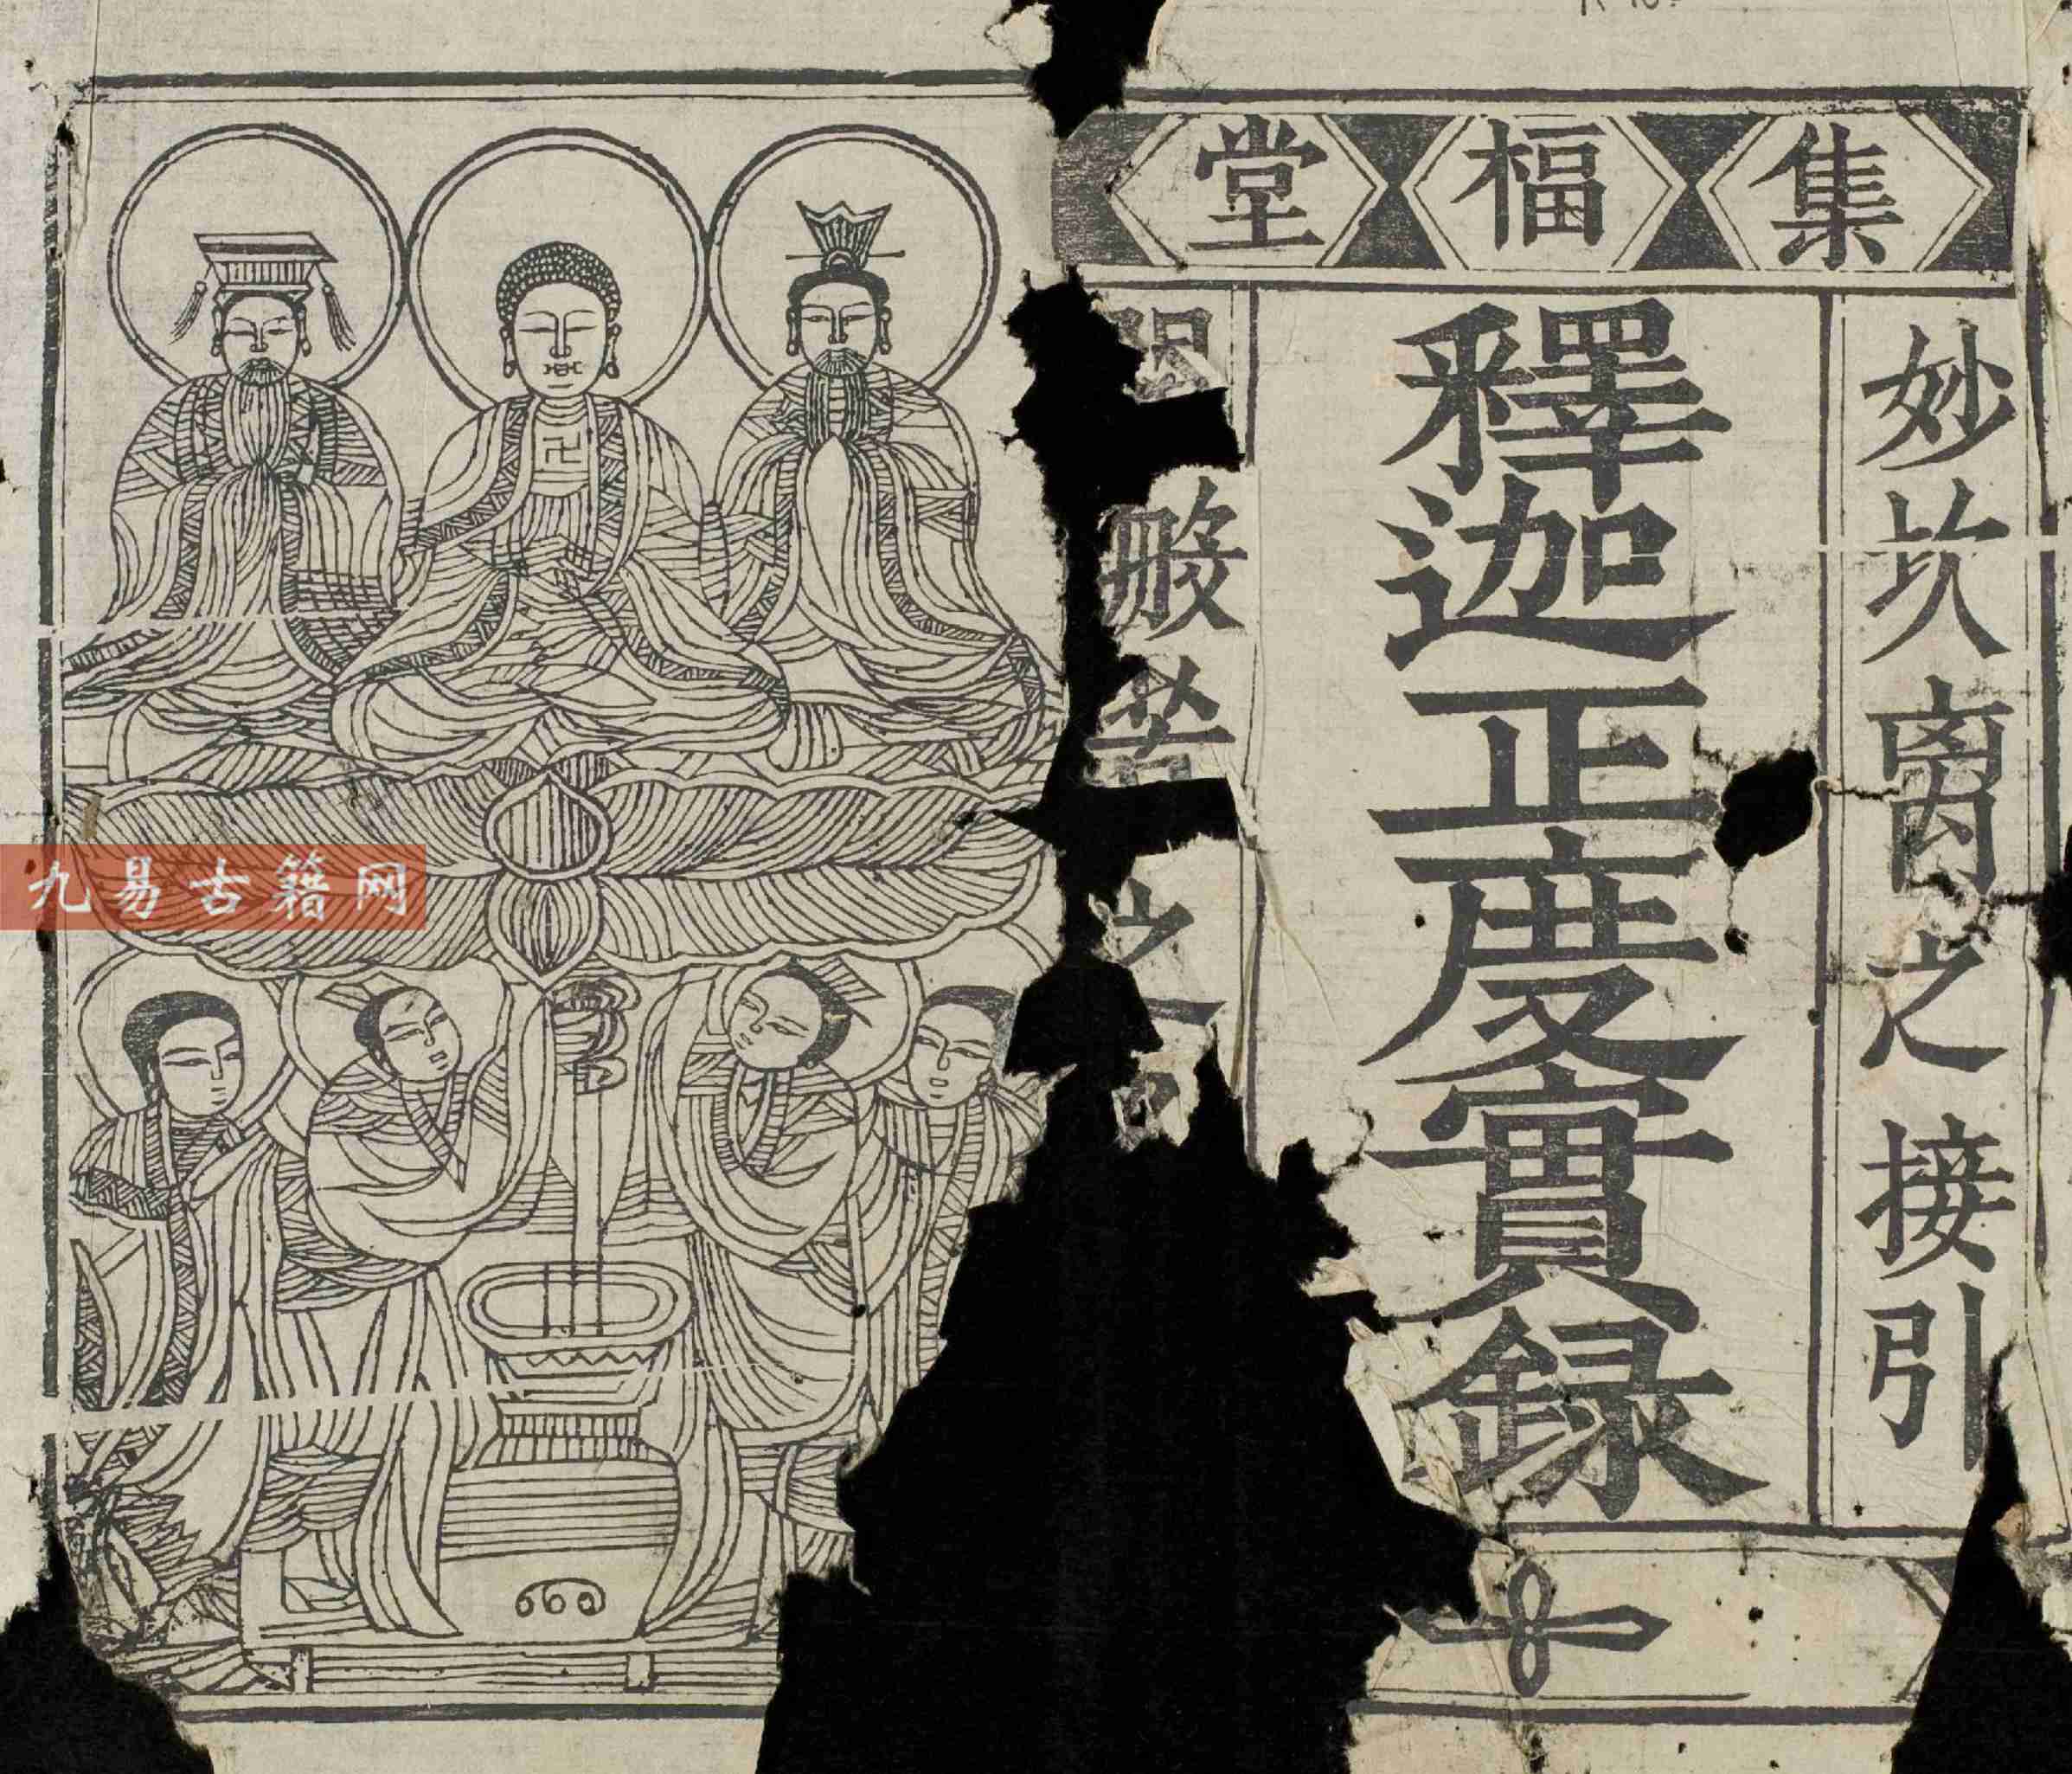 集福堂
妙坎离之接引
釋迦正度實録
般若之
九易古籍网